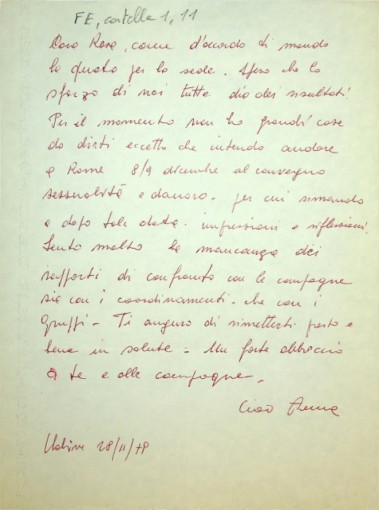 FE, cartella 1, 11
Cara Rosa, come d'accordo ti mando
la quota per la sede. Spero che lo
sforzo di noi tutte dia dei risultati
Per il momento non ho grandi cose
da dirti eccetto che intendo andare
a Roma 8/9 dicembre al convegno
sessualità e denaro. per cui rimando
a dopo tale data. impressioni e riflessioni.
Sento molto la mancanza dei
rapporti di confronto con le compagne
sia con i coordinamenti. che con i
gruppi - Ti auguro di rimetterti presto e
bene in salute - Un forte abbraccio
a te e alle compagne.
Ciao
Udine 28/11/78